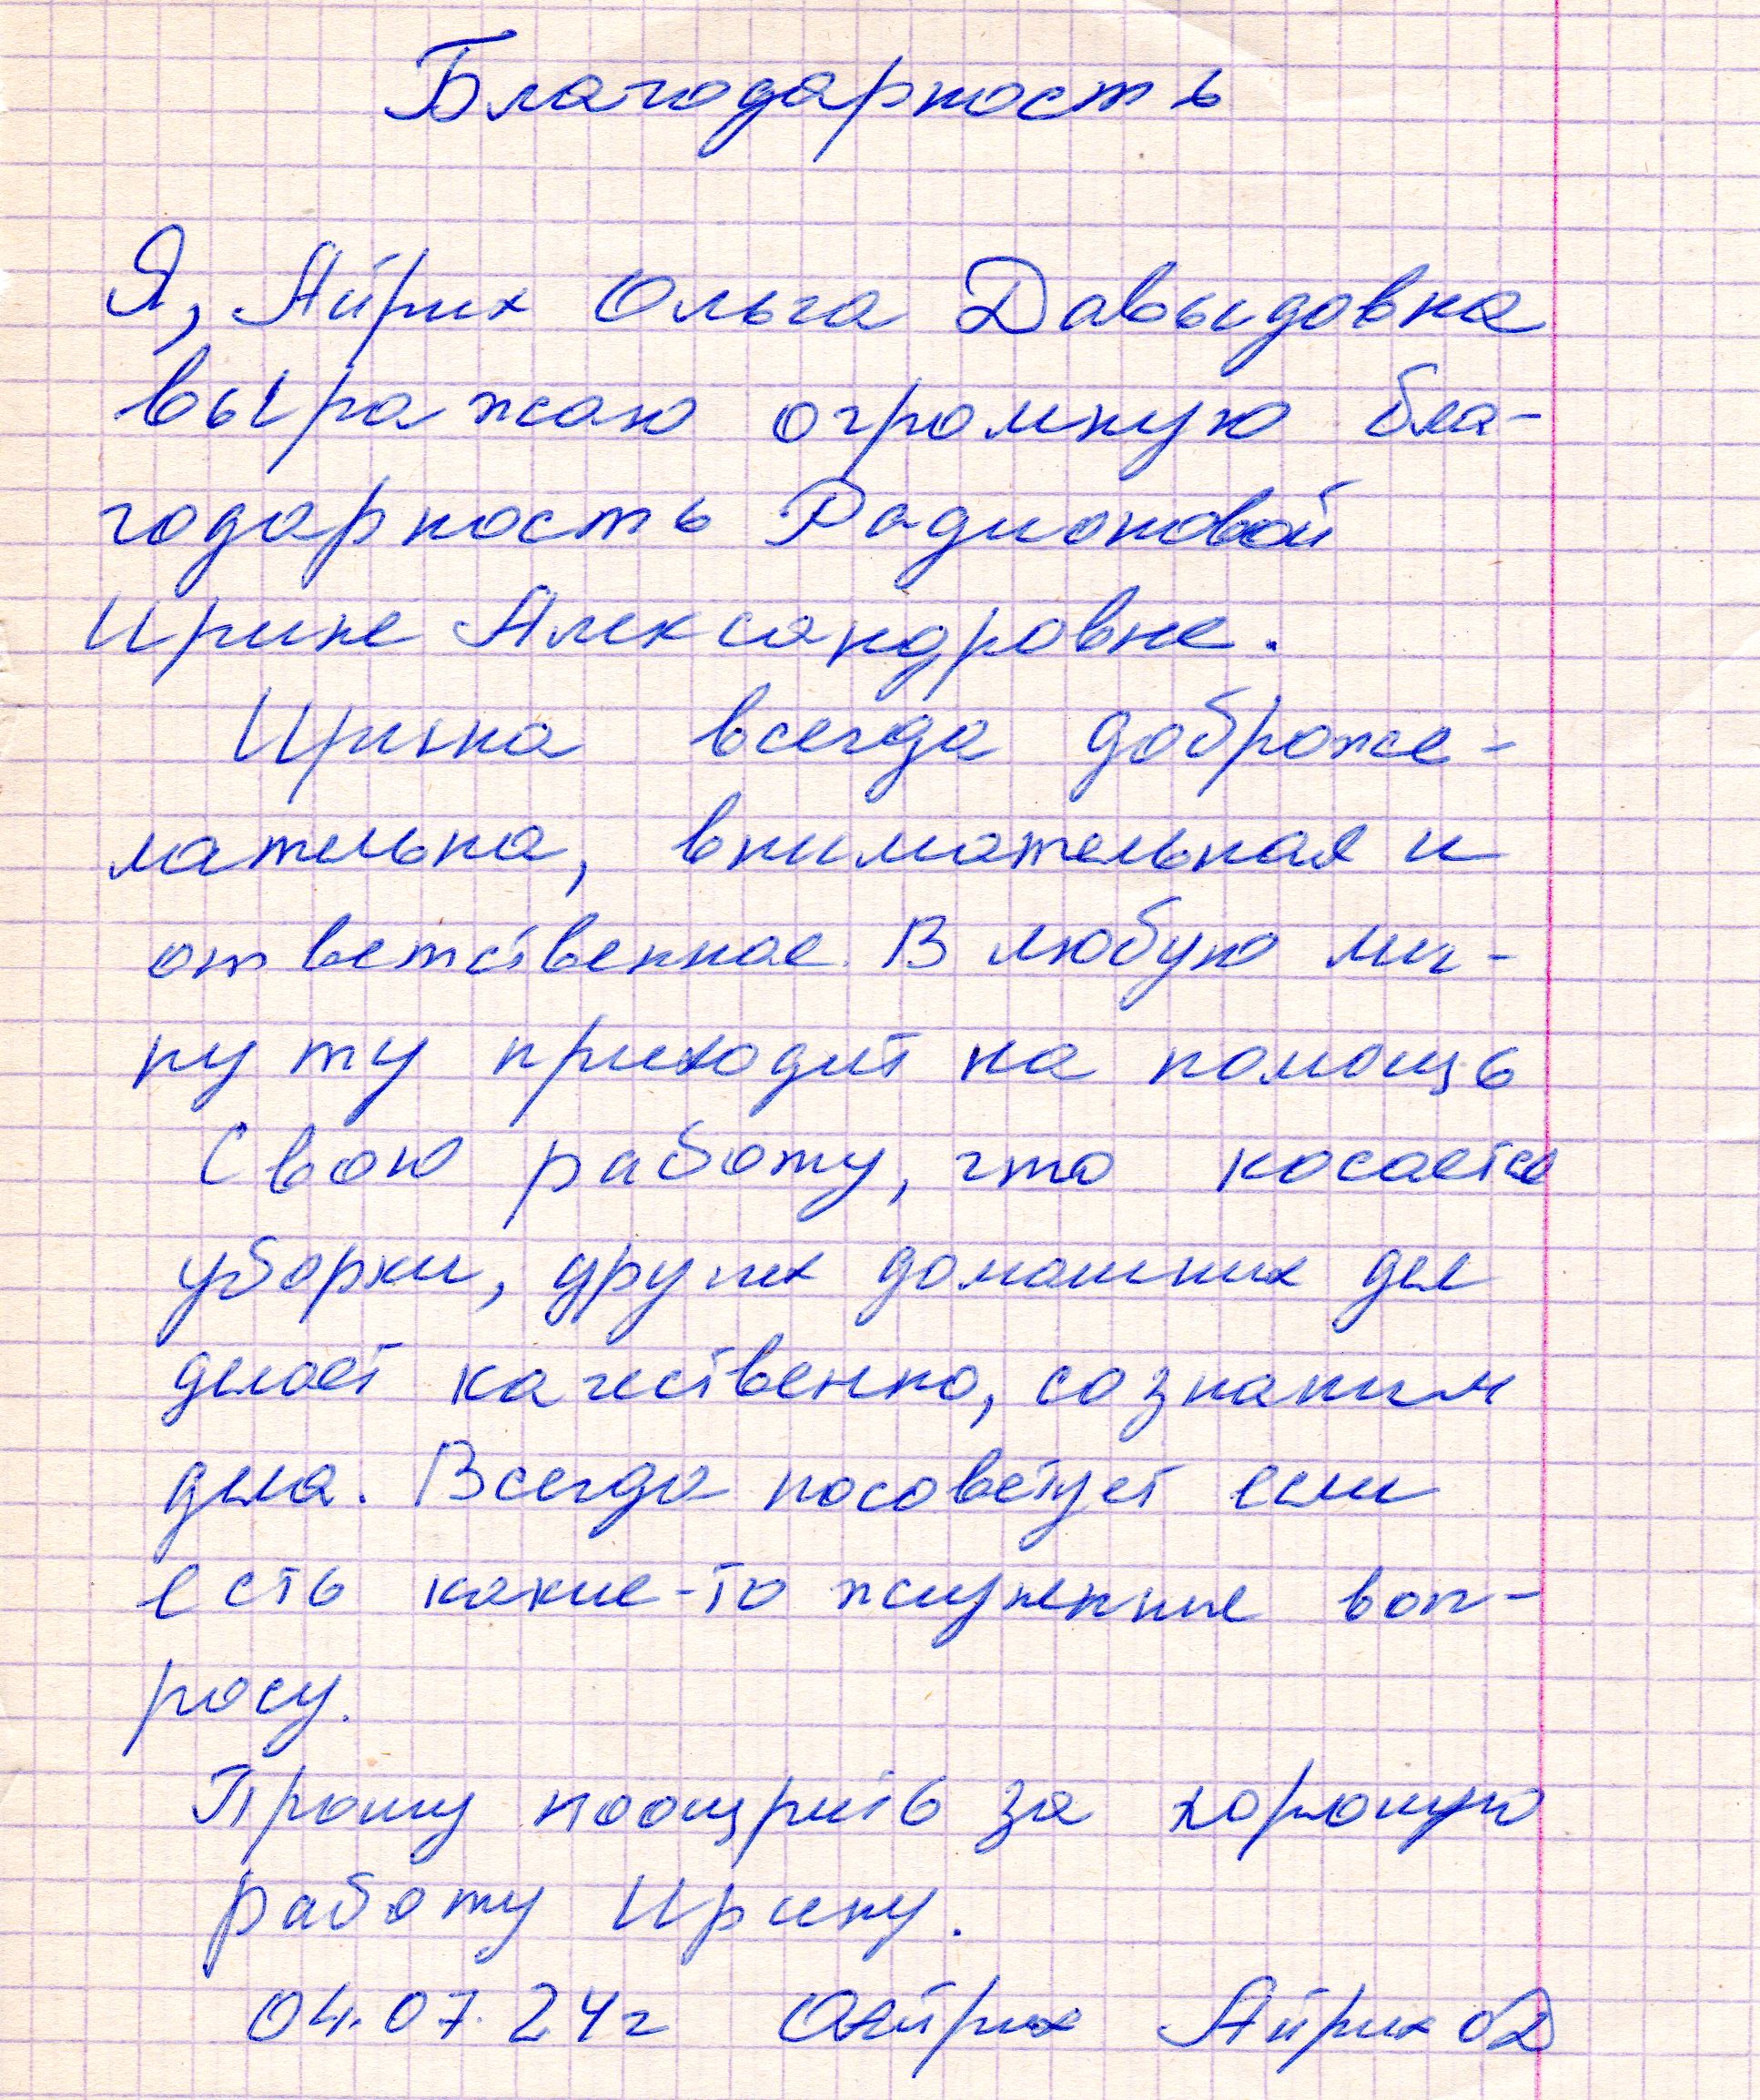 Благодарность
Я, Айрих Ольга Давыдовна
выражаю огромную бла-
годарность Радионовой
Ирине Александровне.
Ирина всегда доброже-
лательна, внимательная и
ответственная. В любую ми-
нуту приходит на помощь
Свою работу, что касается
уборки, других домашних дел
делает качественно, со знаним
дела. Всегда посоветует если
есть какие-то жизненные воп-
росу.
Прошу поощрить за хорошую
работу Ирину.
04.07.24г ОАйрих Айрих ОД